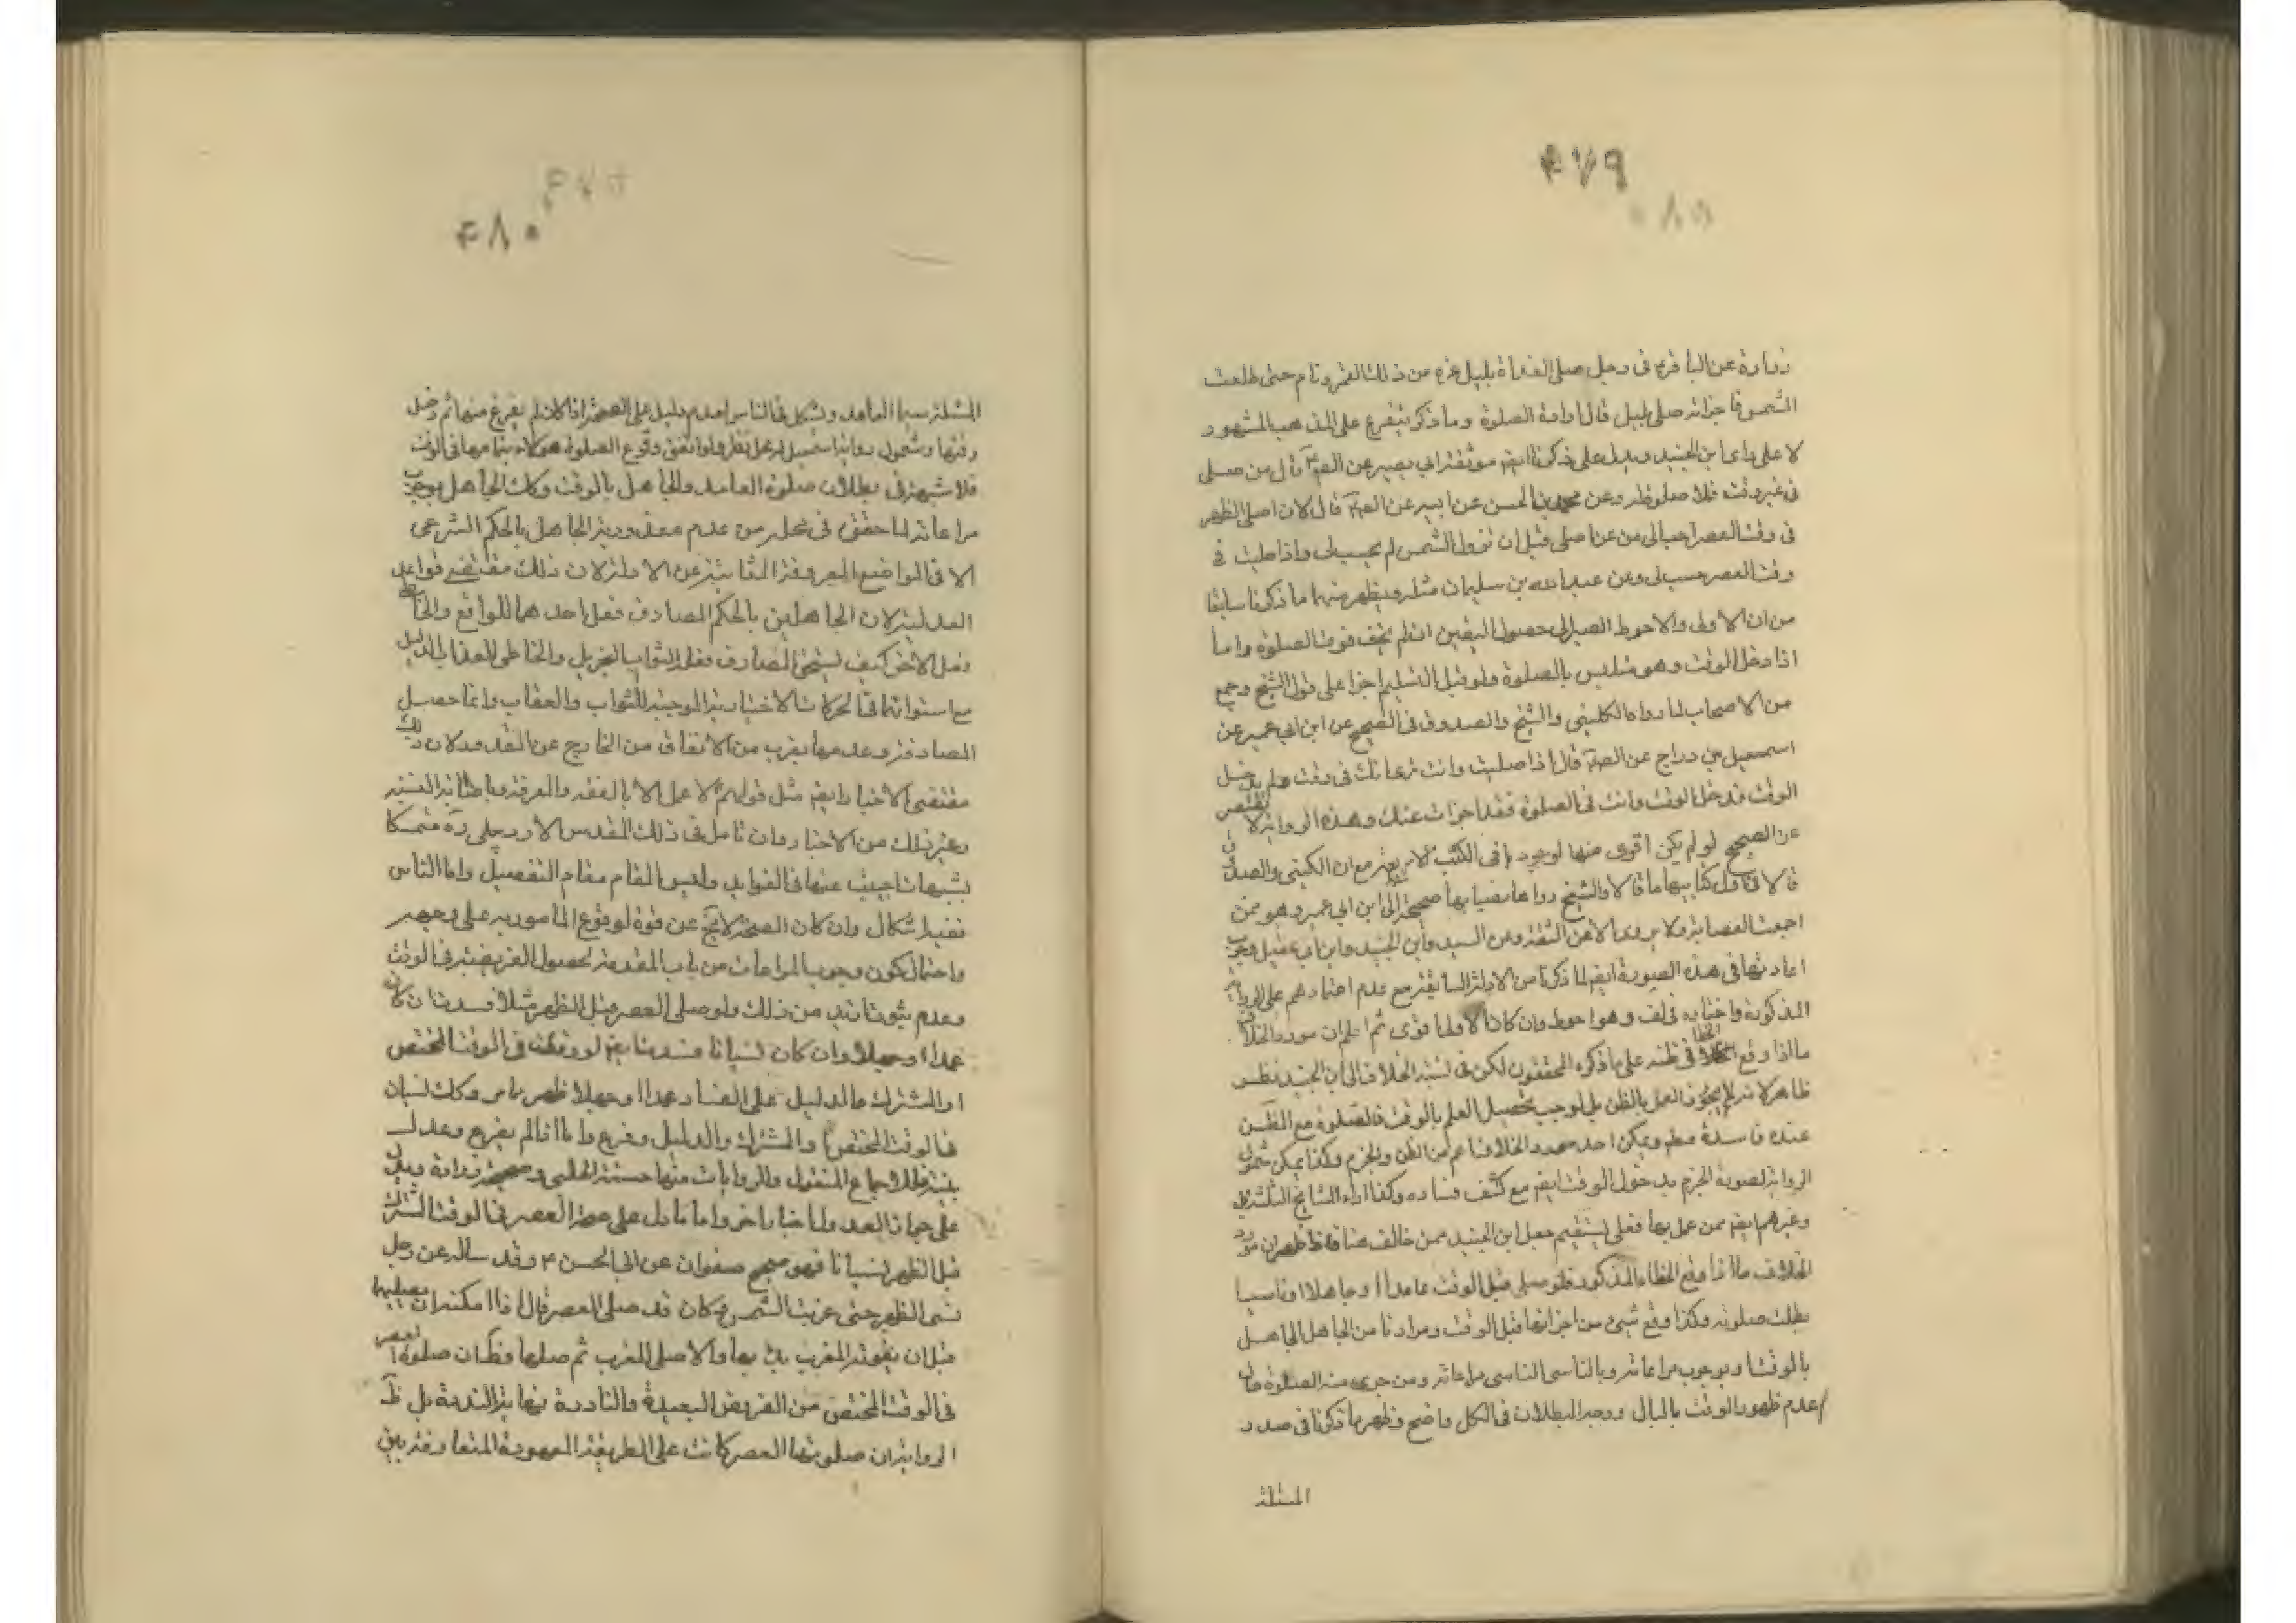 ۴۷۹
زرارة عن الباقر۴ فى رجل صلى الغداة بليل غره من ذلك القمر ونام حتى طلعت
الشمس فاخبر انه صلى بليل قال اعادة الصلوة وما ذكر يتفرع على المذهب المشهور
لا على راى ابن الجنيد ويدل على ذكرنا ايضم موثقة ابى بصير عن الصم۴ قال من صلى
فى غير وقت فلا صلوة له وعن محمد بن الحسن عن ابيه عن الصم۴ قال لان اصلى الظهر
فى وقت العصر احب الى من عن اصلى قبل ان تزول الشمس لم يحسب لى واذا صليت فى
وقت العصر حسب لى وعن عبد الله بن سليمان مثله ويظهر منهما ما ذكرنا سابقا
من ان الاولى والاحوط الصبر الى حصول اليقين ان لم يخف فوت الصلوة واما
اذا دخل الوقت وهو متلبس بالصلوة ولو قبل التسليم اجزا على قول الشيخ وجمع
من الاصحاب لما رواه الكلينى والشيخ والصدوق فى الصحيح عن ابن ابى عمير عن
اسمعيل بن دراج عن الصم۴ قال اذا صليت وانت ترى انك فى وقت ولم يدخل
الوقت فدخل الوقت وانت فى الصلوة فقد اجزات عنك وهذه الرواية لا تقتصر
عن الصحيح لو لم يكن اقوى منها لوجودها فى الكتب الاربعة مع ان الكلينى والصدوق
قالا فى اول كتابيهما ما قالا والشيخ رواها بصيابها صحيحة الى ابن ابى عمير وهو ممن
اجمعت العصابة ولا يروى الا عن الثقة وعن السيد وابن الجنيد وابن ابى عقيل وجوب
اعادتها فى هذه الصورة ايضم لما ذكرنا من الادلة السابقة مع عدم اعتمادهم على الرواية
المذكورة واختاره فى لف وهو احوط وان كان الاول اقوى ثم اعلم ان مورد الخلاف
ما اذا وقع الخطا فى ظنه على ما ذكره المحققون لكن فى نسبة الخلاف الى ابن الجنيد نظر
ظاهر لانه لا يجوز العمل بالظن بل يوجب تحصيل العلم بالوقت فالصلوة مع الظن
عنده فاسدة مطم ويمكن اخذ مورد الخلاف اعم من الظن والجزم وكذا يمكن شمول
الرواية لصورة الجزم بدخول الوقت ايضم مع كشف فساده وكذا اراء المشايخ الثلثة
وغيرهم ايضم ممن عمل بها فعلى يستقيم جعل ابن الجنيد ممن خالف هنا فاذا ظهر ان مورد
الخلاف ما اذا وقع الخطاء المذكور فلو صلى قبل الوقت عامدا او جاهلا او ناسيا
بطلت صلوته وكذا لو وقع شىء من اجزائها قبل الوقت ومرادنا من الجاهل الجاهل
بالوقت او بوجوب مراعاته وبالناسى الناسى مراعاته ومن جرى منه الصلوة حال
عدم ظهور الوقت بالبال ووجه البطلان فى الكل واضح وظهر ما ذكرنا فى صدد
المسئلة
۴۸۰
المسئلة سيما العامد ويشكل فى الناس لعدم دليل على الصحة اذا كان لم يفرغ منها ثم دخل
وقتها وشمول رواية اسمعيل له محل نظر ولو اتفق وقوع الصلوة هؤلاء بتمامها فى الوقت
فلا شبهة فى بطلان صلوة العامد والجاهل بالوقت وكك الجاهل بوجوب
مراعاته لما حقق فى محله من عدم معذورية الجاهل بالحكم الشرعى
الا فى المواضع المعروفة الثابتة عن الادلة لان ذلك مقتضى قواعد
العدلية لان الجاهلين بالحكم المصادف فعل احدهما للواقع والخاطى
فعل الاخر كيف يستحق المصادف فعله الثواب الجزيل والخاطى العذاب الدليل
مع استوائهما فى الحركات الاختيارية الموجبة للثواب والعقاب وانما حصل
المصادفة وعدمها بضرب من الاتفاق من الخارج عن المقدور لان ذلك
مقتضى الاخبار ايضم مثل قولهم۴ لا عمل الا بالفقه والمعرفة وباصابة السنة
وغير ذلك من الاخبار وان تامل فى ذلك المقدس الاردبيلى ره متمسكا
بشبهات اجيبت عنها فى الفوايد وليس المقام مقام التفصيل واما الناس
ففيه اشكال وان كان الصحة لا يخ عن قوة لوقوع المامور به على وجهه
واحتمال كون وجوب المراعات من باب المقدمة لحصول الفريضة فى الوقت
وعدم ثبوت ازيد من ذلك ولو صلى العصر قبل الظهر مثلا فسدت ان كان
عمدا او جهلا وان كان نسيانا فسدت ايضم لو وقعت فى الوقت المختص
او المشترك والدليل على الفساد عمدا او جهلا ظهر مما مر وكك نسيان
فى الوقت المختص او المشترك والدليل وفرغ واما اذا لم يفرغ وعدل
بنيته فللاجماع المنقول والروايات منها حسنة الحلبى وصحيحة زرارة ويدل
على جواز العدول اخبار اخر واما ما دل على صحة العصر فى الوقت المشترك
قبل الظهر نسيانا فهو صحيح صفوان عن ابى الحسن ۴ وقد ساله عن رجل
نسى الظهر حتى غربت الشمس وكان قد صلى العصر قال اذا امكنه ان يصليها
قبل ان يفوته المغرب بدء بها والا صلى المغرب ثم صلها وكان صلوة العصر
فى الوقت المختص من الفروض البعيدة والنادرة نهاية الندرة بل ظ
الرواية ان صلوتها العصر كانت على الطريقة المعهودة المتعارفة بين